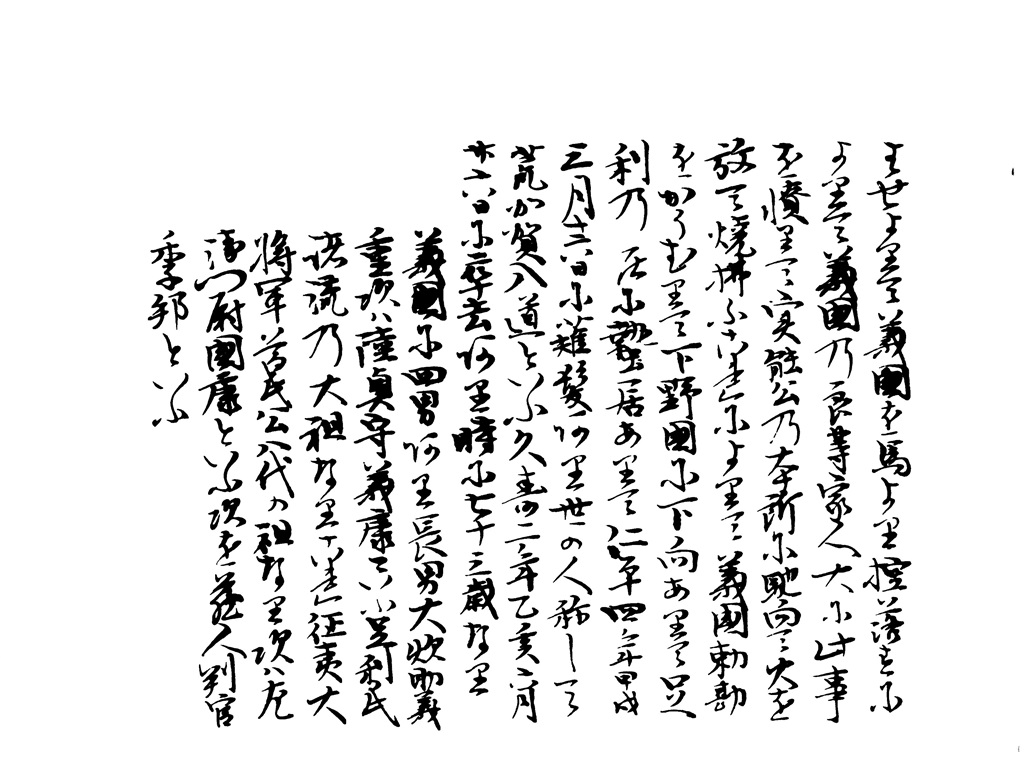 よせよりて義国を馬より控落すに
よりて義国乃良等家人大に此事
を憤りて実能公乃本所に馳向て火を
放て焼拂ふこれによりて義国勅勘
をかうむりて下野国に下向ありて足
利乃居に蟄居ありて仁平四年甲戌
三月十六日に薙髪あり世の人称して
荒加賀入道といふ久寿二年乙亥六月
廿六日に卒去あり時に七十三歳なり
義国に四男あり長男大炊助義
重次ハ陸奥守義康これ足利氏
諸流乃大祖なりこれ征夷大
将軍尊氏公八代の祖なり次ハ左
衛門尉国康といふ次を蔵人判官
季邦といふ